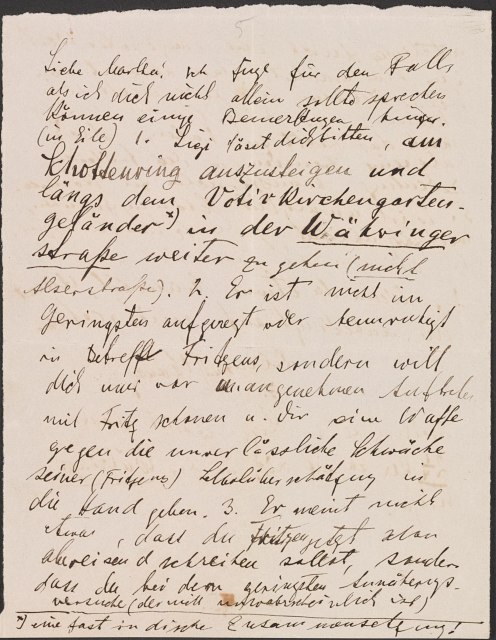 5
Liebe Martha! Ich füge für den Fall,
als ich dich nicht allein sollte sprechen
können einige Bemerkungen hinzu.
(in Eile) 1. Sigi lässt dich bitten, am
Schottenring auszusteigen und
längs dem Votivkirchengarten-
geländer*) in der Währinger
straße weiter zu gehen (nicht
Alserstraße). 2. Er ist nicht im
Geringsten aufgeregt oder beunruhigt
in Betreff Fritzens, sondern will
dich nur vor unangenehmen Auftreten
mit Fritz schonen u. dir eine Waffe
gegen die unverlässliche Schwäche
seiner (Fritzens) Selbstüberschätzung in
die Hand geben. 3. Er meint nicht
etwa, dass du Fritzen jetzt
abweisend schreiben sollst, sondern
dass du bei dem geringsten Annäherungs-
versuche (der mir unwahrscheinlich ist)
*) eine fast indische Zusammensetzung!